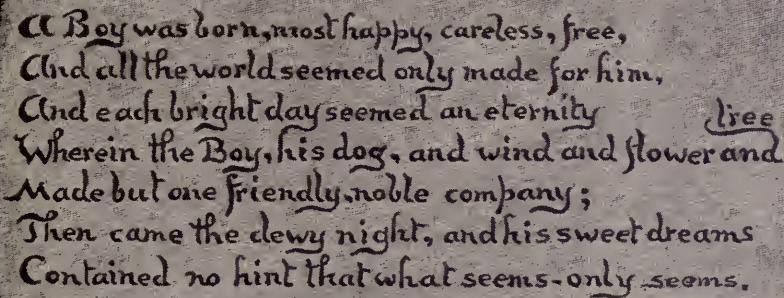 A Boy was born, most happy, careless, free,
And all the world seemed only made for him,
And each bright day seemed an eternity
tree
Wherein the Boy, his dog, and wind and flower and
Made but one friendly, noble company;
Then came the dewy night, and his sweet dreams
Contained no hint that what seems-only seems.